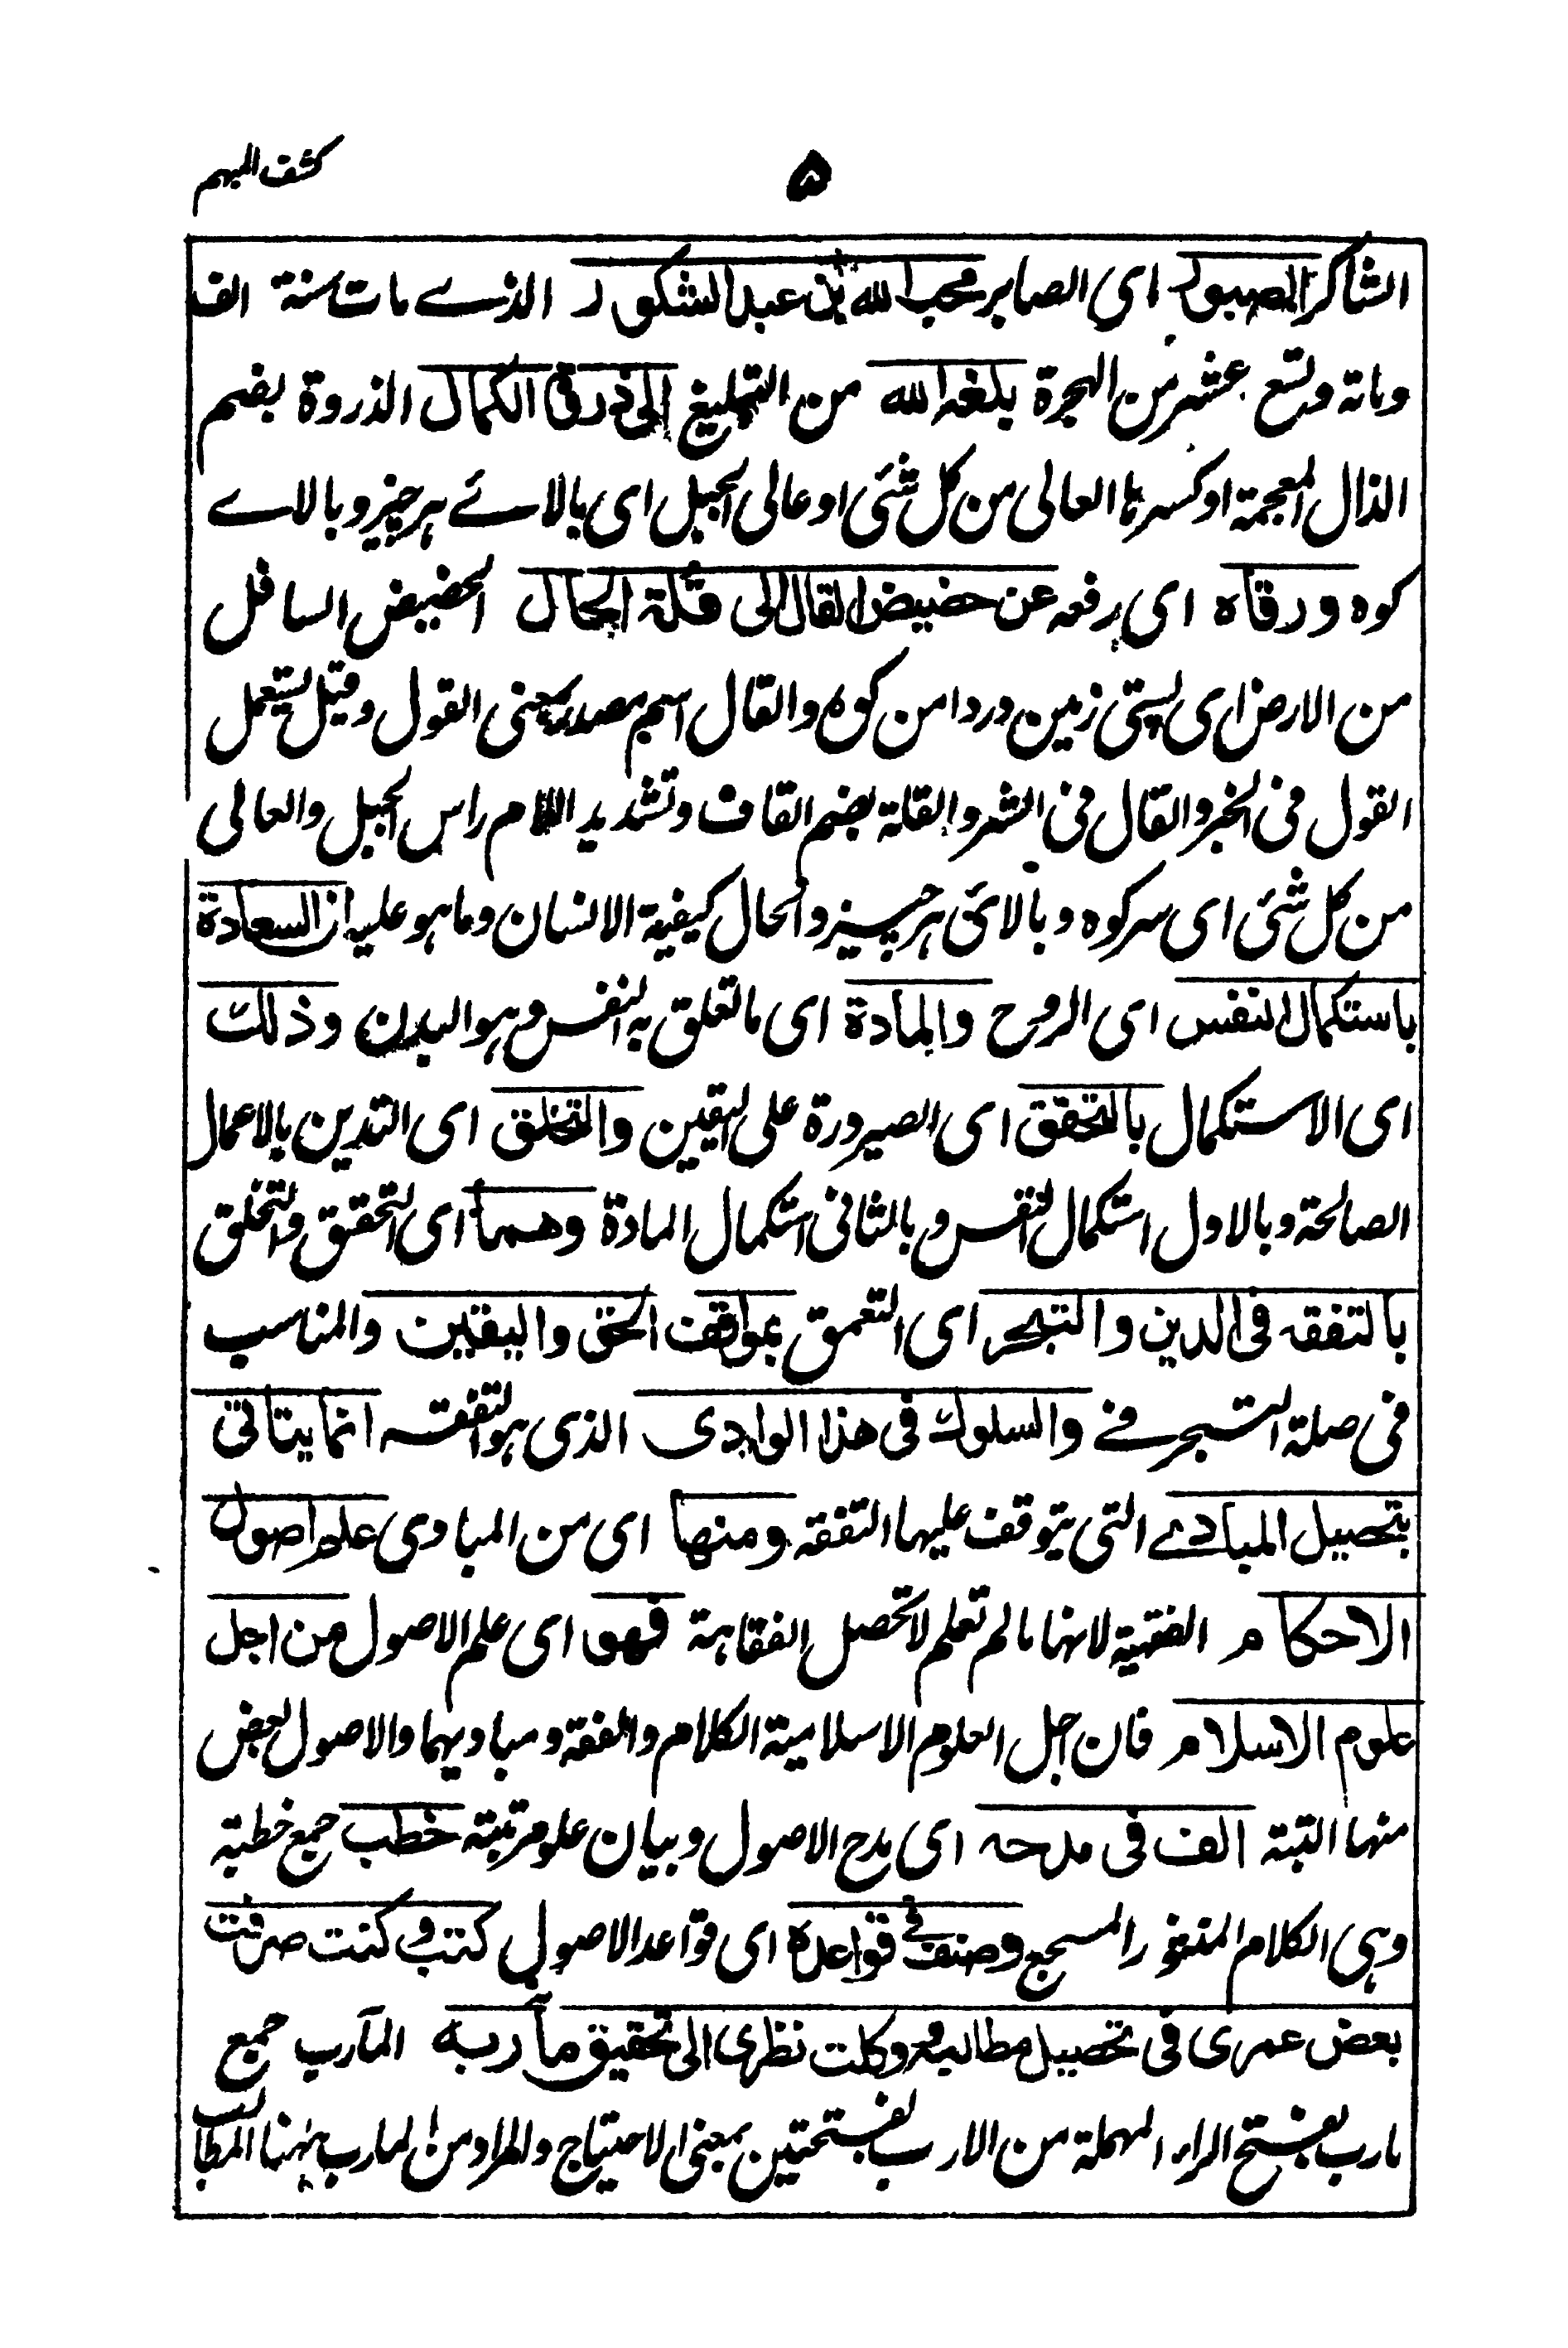 كشف المبهم
۵
الشاكر الصبور اى الصابر محب الله بن عبد الشكور الذے مات سنة الف
ومائة وتسع عشر من الهجرة بلغه الله من التبليغ الى ذروة الكمال الذروة بضم
الذال المعجمة او كسرها العالى من كل شئى او عالى الجبل اى بالائے هر چيز و بالاے
كوه ورقاه اى رفعه عن حضيض القال الى قلة الحال الحضيض السافل
من الارض اى پستى زمين ودر دامن كوه والقال اسم مصدر بمعنى القول وقيل يستعمل
القول فى الخير والقال فى الشر والقلة بضم القاف وتشديد اللام راس الجبل والعالى
من كل شئى اى سر كوه و بالائى هر چيز والحال كيفية الانسان وما هو عليه ان السعادة
باستكمال النفس اى الروح والمادة اى ما تعلق به النفس وهو البدن وذلك
اى الاستكمال بالتحقق اى الصيرورة على اليقين والتخلق اى التدين بالاعمال
الصالحة وبالاول استكمال النفس وبالثانى استكمال المادة وهما اى التحقق والتخلق
بالتفقه فى الدين والتبحر اى التعمق بمواقف الحق واليقين والمناسب
فى صلة التبحر فے والسلوك فى هذا الوادى الذى هو التفقه انما يتاتى
بتحصيل المبادے التى يتوقف عليها التفقه ومنها اى من المبادى علم اصول
الاحكام الفقهية لانها ما لم تعلم لا تحصل الفقاهة فهو اى علم الاصول من اجل
علوم الاسلام فان اجل العلوم الاسلامية الكلام والفقه ومباديهما والاصول لبعض
منها البتة الف فى مدحه اى مدح الاصول وبيان علو مرتبته خطب جمع خطبة
وهى الكلام المنثور المسجع وصنف فى قواعده اى قواعد الاصول كتب وكنت صرفت
بعض عمرى فى تحصيل مطالبه ووكلت نظرى الى تحقيق مآربه المآرب جمع
مارب بفتح الراء المهملة من الارب بفتحتين بمعنى الاحتياج والمراد من المارب ههنا المطالب